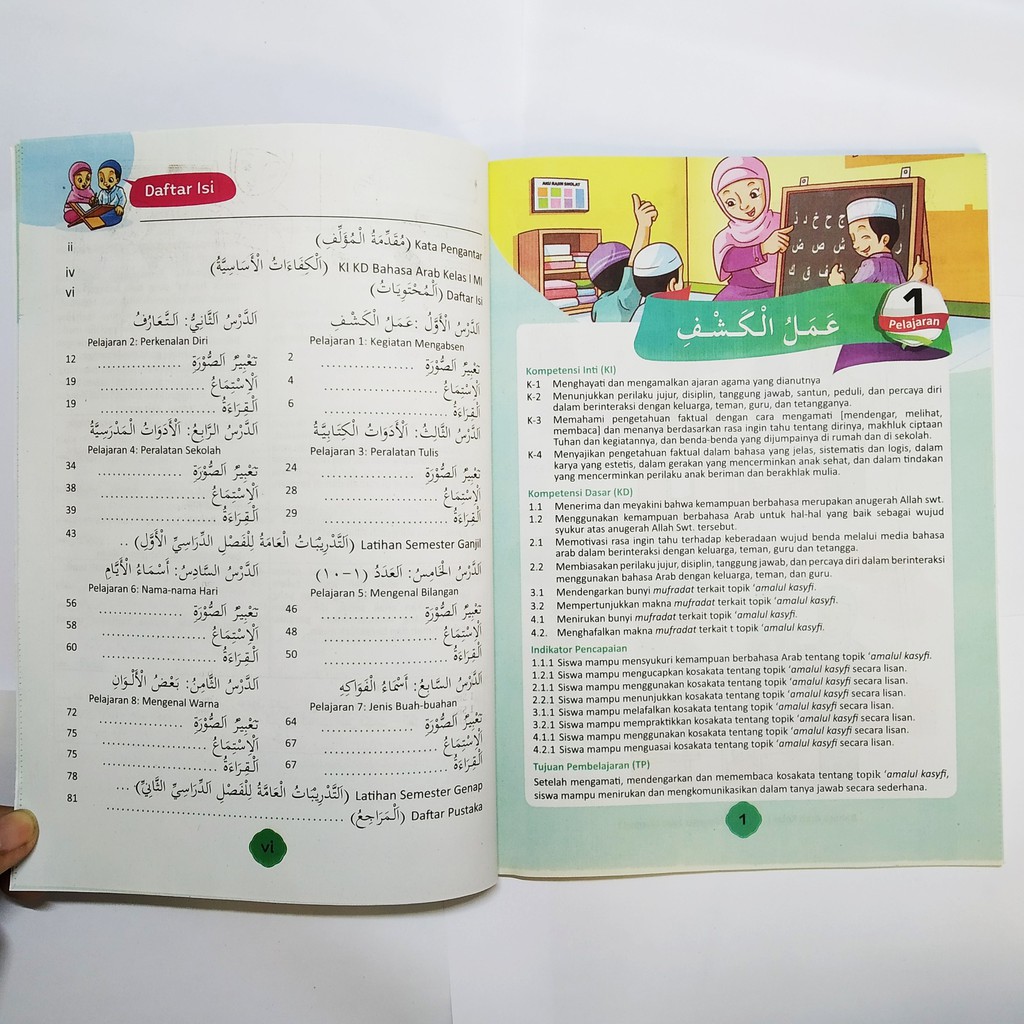 Daftar Isi
Kata Pengantar (مُقَدِّمَةُ الْمُؤَلِّفِ) ii
KI KD Bahasa Arab Kelas I MI (اَلْكِفَاءَاتُ الْأَسَاسِيَّةُ) iv
Daftar Isi (اَلْمُحْتَوِيَاتُ) vi
اَلدَّرْسُ الْأَوَّلُ :عَمَلُ الْكَشْفِ
Pelajaran 1: Kegiatan Mengabsen
تَعْبِيرُ اَلصُّوْرَةِ ................ 2
اَلْاِسْتِمَاعُ ................ 4
اَلْقِرَاءَةُ ................ 6
اَلدَّرْسُ الثَّانِيُّ: اَلتَّعَارُفُ
Pelajaran 2: Perkenalan Diri
تَعْبِيرُ اَلصُّوْرَةِ ................ 12
اَلْاِسْتِمَاعُ ................ 19
اَلْقِرَاءَةُ ................ 19
اَلدَّرْسُ الثَّالِثُ: اَلْأَدَوَاتُ الْكِتَابِيَّةُ
Pelajaran 3: Peralatan Tulis
تَعْبِيرُ اَلصُّوْرَةِ ................ 24
اَلْاِسْتِمَاعُ ................ 28
اَلْقِرَاءَةُ ................ 29
اَلدَّرْسُ الرَّابِعُ: اَلْأَدَوَاتُ الْمَدْرَسِيَّةُ
Pelajaran 4: Peralatan Sekolah
تَعْبِيرُ اَلصُّوْرَةِ ................ 34
اَلْاِسْتِمَاعُ ................ 38
اَلْقِرَاءَةُ ................ 39
Latihan Semester Ganjil (اَلتَّدْرِيْبَاتُ الْعَامَةُ لِلْفَصْلِ الدِّرَاسِيِّ الْأَوَّلِ) .. 43
اَلدَّرْسُ الْخَامِسُ: اَلعَدَدُ (١-١٠)
Pelajaran 5: Mengenal Bilangan
تَعْبِيرُ اَلصُّوْرَةِ ................ 46
اَلْاِسْتِمَاعُ ................ 48
اَلْقِرَاءَةُ ................ 50
اَلدَّرْسُ السَّادِسُ: أَسْمَاءُ الْأَيَّامِ
Pelajaran 6: Nama-nama Hari
تَعْبِيرُ اَلصُّوْرَةِ ................ 56
اَلْاِسْتِمَاعُ ................ 58
اَلْقِرَاءَةُ ................ 60
اَلدَّرْسُ السَّابِعُ: أَسْمَاءُ الْفَوَاكِهِ
Pelajaran 7: Jenis Buah-buahan
تَعْبِيرُ اَلصُّوْرَةِ ................ 64
اَلْاِسْتِمَاعُ ................ 67
اَلْقِرَاءَةُ ................ 67
اَلدَّرْسُ الثَّامِنُ: بَعْضُ الْأَلْوَانِ
Pelajaran 8: Mengenal Warna
تَعْبِيرُ اَلصُّوْرَةِ ................ 72
اَلْاِسْتِمَاعُ ................ 75
اَلْقِرَاءَةُ ................ 75
Latihan Semester Genap (اَلتَّدْرِيْبَاتُ الْعَامَّةُ لِلْفَصْلِ الدِّرَاسِيِّ الثَّانِيِّ) ... 78
Daftar Pustaka (اَلْمَرَاجِعُ) ................ 81
vi
AKU RAJIN SHOLAT
ج ح خ د ذ
ش ص ض
ف ق ك
1
Pelajaran
عَمَلُ الْكَشْفِ
Kompetensi Inti (KI)
K-1 Menghayati dan mengamalkan ajaran agama yang dianutnya
K-2 Menunjukkan perilaku jujur, disiplin, tanggung jawab, santun, peduli, dan percaya diri
dalam berinteraksi dengan keluarga, teman, guru, dan tetangganya.
K-3 Memahami pengetahuan faktual dengan cara mengamati [mendengar, melihat,
membaca] dan menanya berdasarkan rasa ingin tahu tentang dirinya, makhluk ciptaan
Tuhan dan kegiatannya, dan benda-benda yang dijumpainya di rumah dan di sekolah.
K-4 Menyajikan pengetahuan faktual dalam bahasa yang jelas, sistematis dan logis, dalam
karya yang estetis, dalam gerakan yang mencerminkan anak sehat, dan dalam tindakan
yang mencerminkan perilaku anak beriman dan berakhlak mulia.
Kompetensi Dasar (KD)
1.1 Menerima dan meyakini bahwa kemampuan berbahasa merupakan anugerah Allah swt.
1.2 Menggunakan kemampuan berbahasa Arab untuk hal-hal yang baik sebagai wujud
syukur atas anugerah Allah Swt. tersebut.
2.1 Memotivasi rasa ingin tahu terhadap keberadaan wujud benda melalui media bahasa
arab dalam berinteraksi dengan keluarga, teman, guru dan tetangga.
2.2 Membiasakan perilaku jujur, disiplin, tanggung jawab, dan percaya diri dalam berinteraksi
menggunakan bahasa Arab dengan keluarga, teman, dan guru.
3.1 Mendengarkan bunyi mufradat terkait topik ‘amalul kasyfi.
3.2 Mempertunjukkan makna mufradat terkait topik ‘amalul kasyfi.
4.1 Menirukan bunyi mufradat terkait topik ‘amalul kasyfi.
4.2. Menghafalkan makna mufradat terkait t topik ‘amalul kasyfi.
Indikator Pencapaian
1.1.1 Siswa mampu mensyukuri kemampuan berbahasa Arab tentang topik ‘amalul kasyfi.
1.2.1 Siswa mampu mengucapkan kosakata tentang topik ‘amalul kasyfi secara lisan.
2.1.1 Siswa mampu menggunakan kosakata tentang topik ‘amalul kasyfi secara lisan.
2.2.1 Siswa mampu menunjukkan kosakata tentang topik ‘amalul kasyfi secara lisan.
3.1.1 Siswa mampu melafalkan kosakata tentang topik ‘amalul kasyfi secara lisan.
3.2.1 Siswa mampu mempraktikkan kosakata tentang topik ‘amalul kasyfi secara lisan.
4.1.1 Siswa mampu menggunakan kosakata tentang topik ‘amalul kasyfi secara lisan.
4.2.1 Siswa mampu menguasai kosakata tentang topik ‘amalul kasyfi secara lisan.
Tujuan Pembelajaran (TP)
Setelah mengamati, mendengarkan dan memembaca kosakata tentang topik ‘amalul kasyfi,
siswa mampu menirukan dan mengkomunikasikan dalam tanya jawab secara sederhana.
1